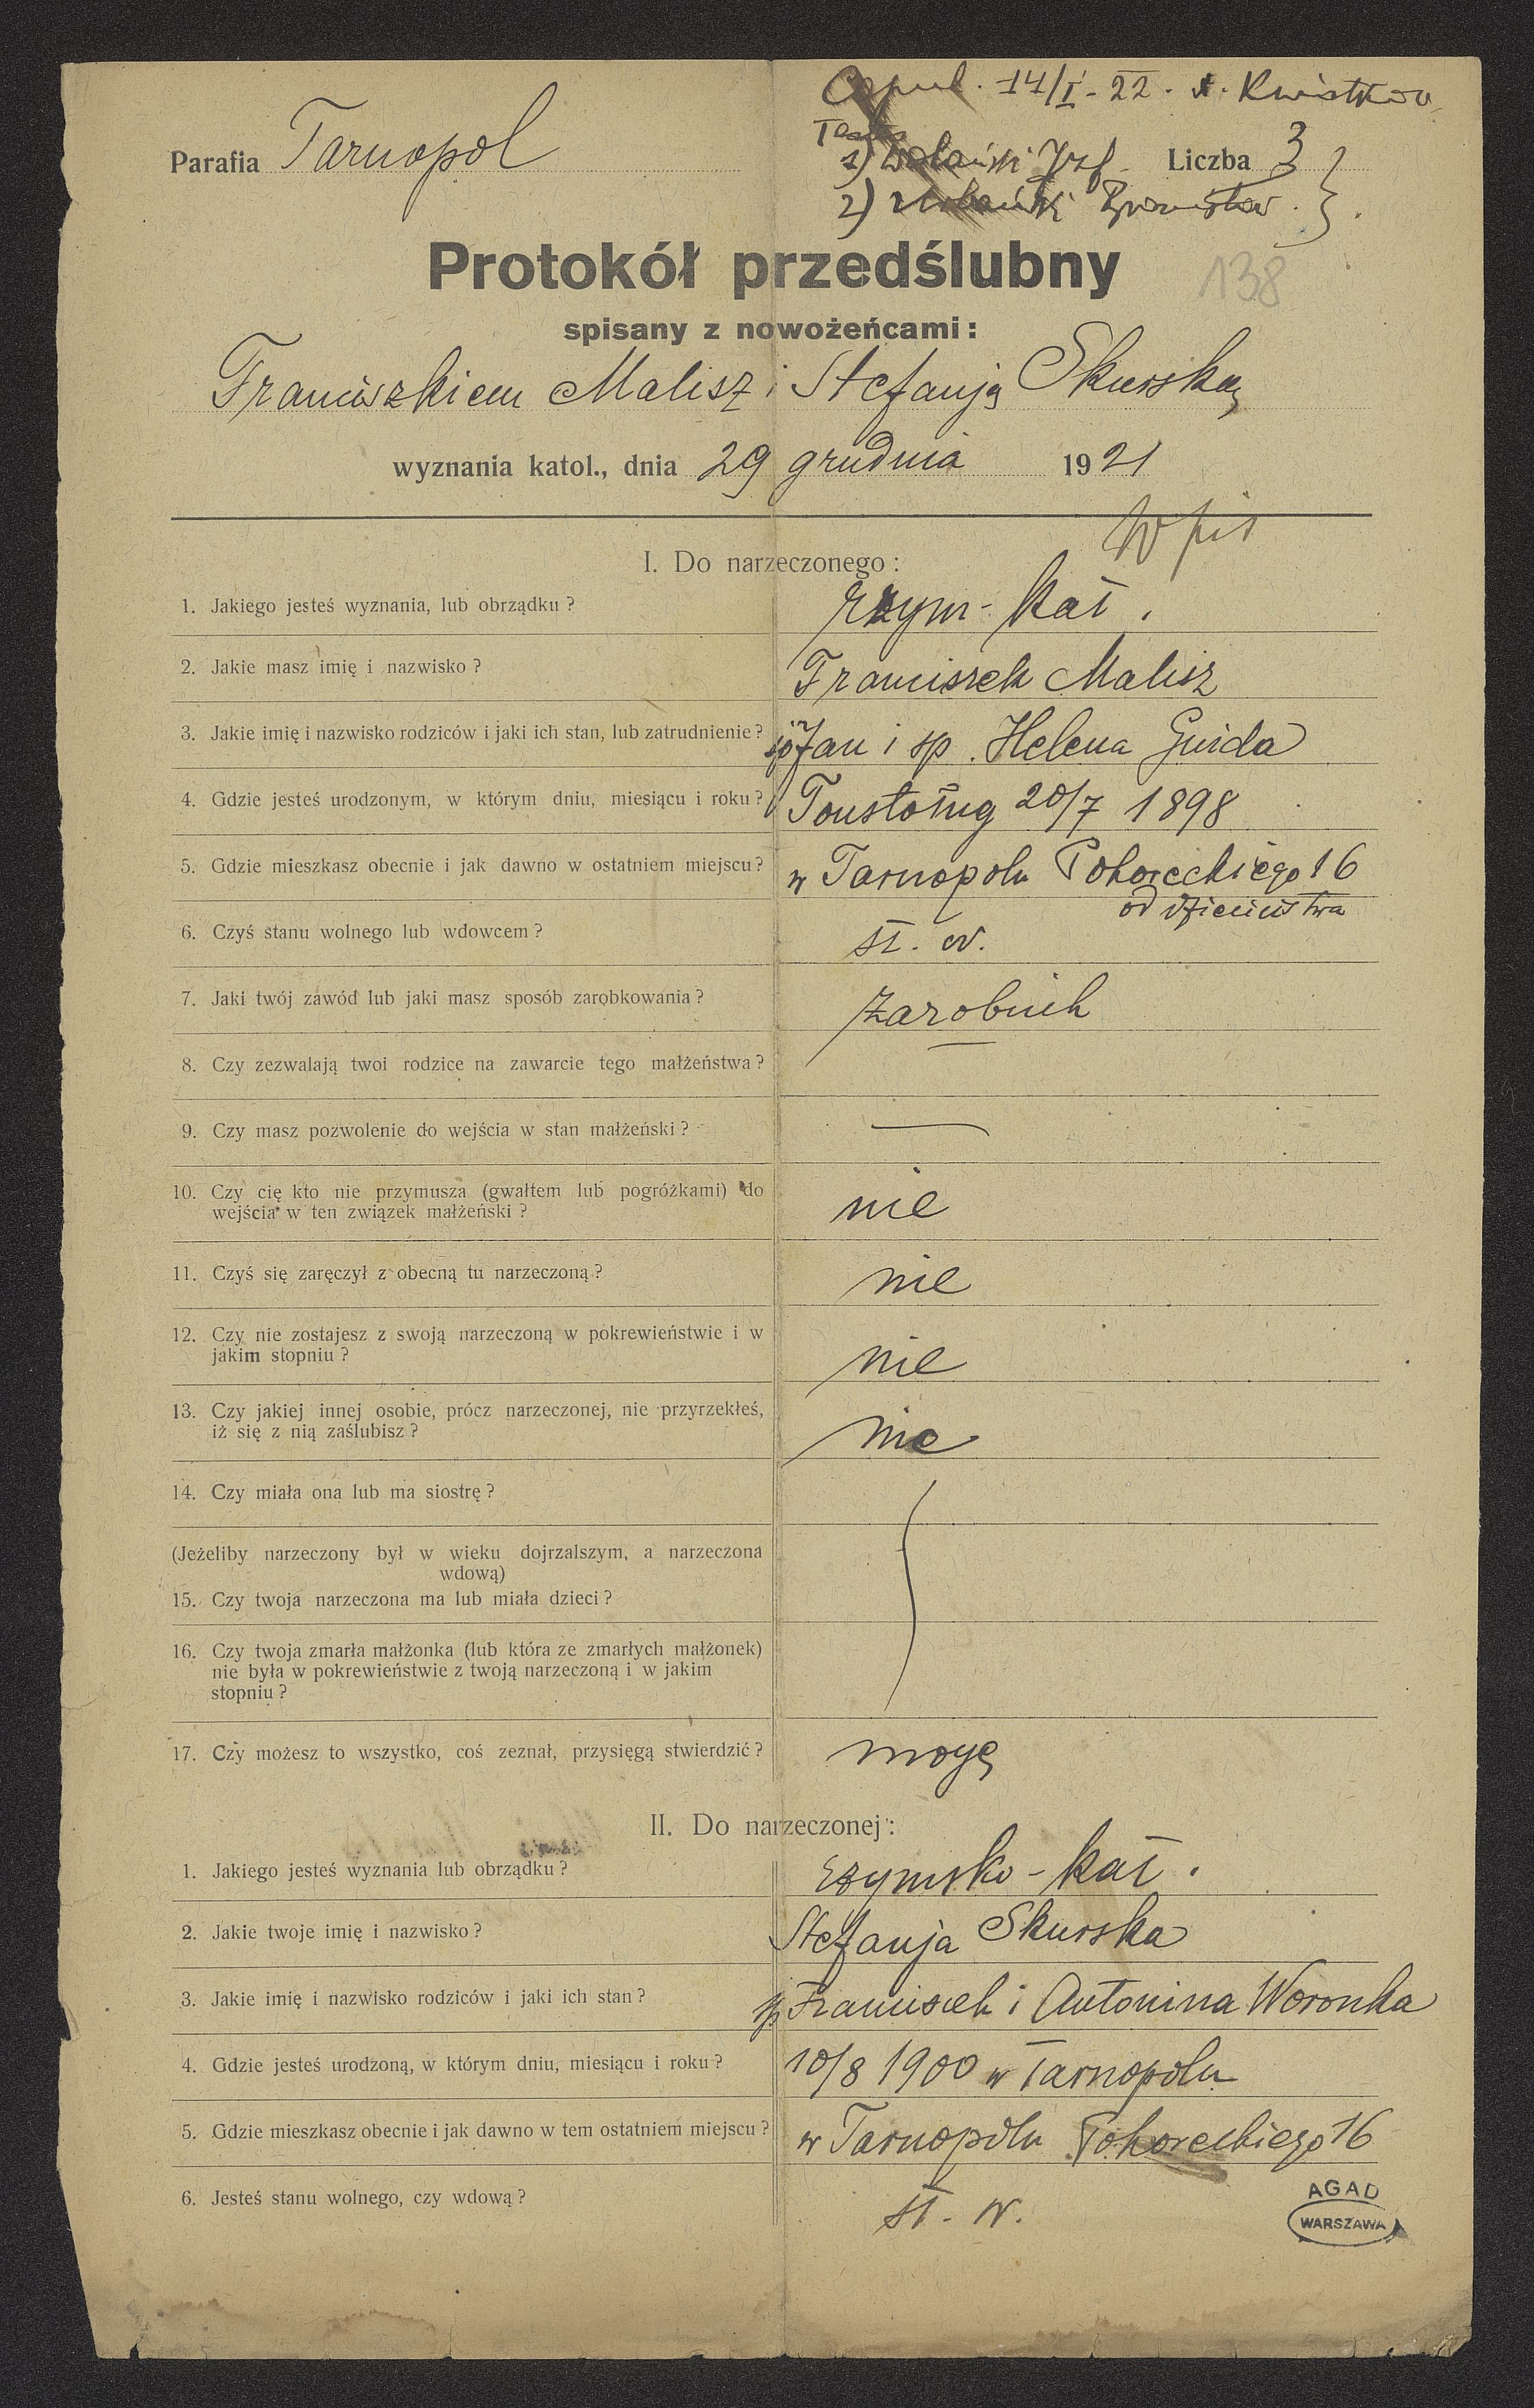 Copul. 14/I - 22. x. Kwiatkow
Testes
Parafia Tarnopol
1) Wolański Józf Liczba 3
2) Wolański Bronisław.
Protokół przedślubny
138
spisany z nowożeńcami:
Franciszkiem Malisz i Stefanją Skurską
wyznania katol., dnia 29 grudnia 1921
Wpis
I. Do narzeczonego:
1. Jakiego jesteś wyznania, lub obrządku? rzym-kat.
2. Jakie masz imię i nazwisko? Franciszek Malisz
3. Jakie imię i nazwisko rodziców i jaki ich stan, lub zatrudnienie? śp Jan i śp. Helena Guida
4. Gdzie jesteś urodzonym, w którym dniu, miesiącu i roku? Toustoług 20/7 1898
5. Gdzie mieszkasz obecnie i jak dawno w ostatniem miejscu? w Tarnopolu Pohoreckiego 16
od dzieciństwa
6. Czyś stanu wolnego lub wdowcem? st. w.
7. Jaki twój zawód lub jaki masz sposób zarobkowania? zarobnik
8. Czy zezwalają twoi rodzice na zawarcie tego małżeństwa?
9. Czy masz pozwolenie do wejścia w stan małżeński? —
10. Czy cię kto nie przymusza (gwałtem lub pogróżkami) do
wejścia w ten związek małżeński? nie
11. Czyś się zaręczył z obecną tu narzeczoną? nie
12. Czy nie zostajesz z swoją narzeczoną w pokrewieństwie i w
jakim stopniu? nie
13. Czy jakiej innej osobie, prócz narzeczonej, nie przyrzekłeś,
iż się z nią zaślubisz? nie
14. Czy miała ona lub ma siostrę?
(Jeżeliby narzeczony był w wieku dojrzalszym, a narzeczona
wdową)
15. Czy twoja narzeczona ma lub miała dzieci?
16. Czy twoja zmarła małżonka (lub która ze zmarłych małżonek)
nie była w pokrewieństwie z twoją narzeczoną i w jakim
stopniu?
17. Czy możesz to wszystko, coś zeznał, przysięgą stwierdzić? mogę
II. Do narzeczonej:
1. Jakiego jesteś wyznania lub obrządku? rzymsko-kat.
2. Jakie twoje imię i nazwisko? Stefanja Skurska
3. Jakie imię i nazwisko rodziców i jaki ich stan? śp Franciszek i Antonina Woronka
4. Gdzie jesteś urodzoną, w którym dniu, miesiącu i roku? 10/8 1900 w Tarnopolu
5. Gdzie mieszkasz obecnie i jak dawno w tem ostatniem miejscu? w Tarnopolu Pohoreckiego 16
6. Jesteś stanu wolnego, czy wdową? st. w.
AGAD
WARSZAWA